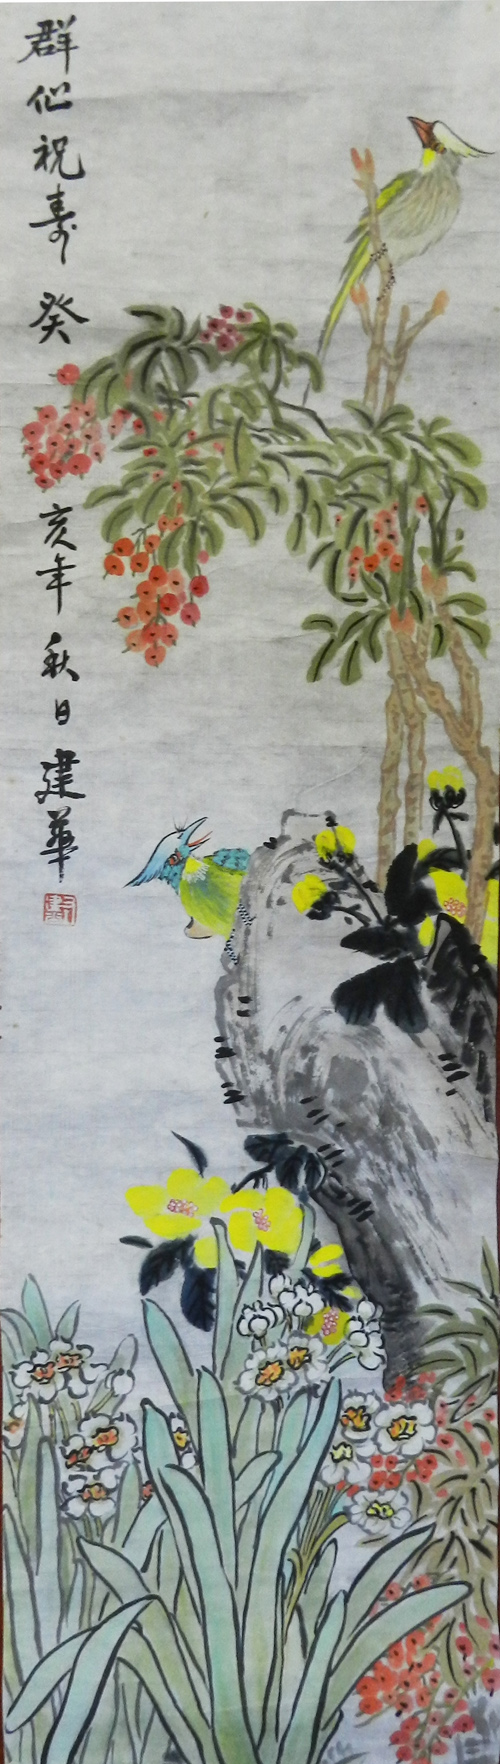 群仙祝寿癸亥年秋日建華